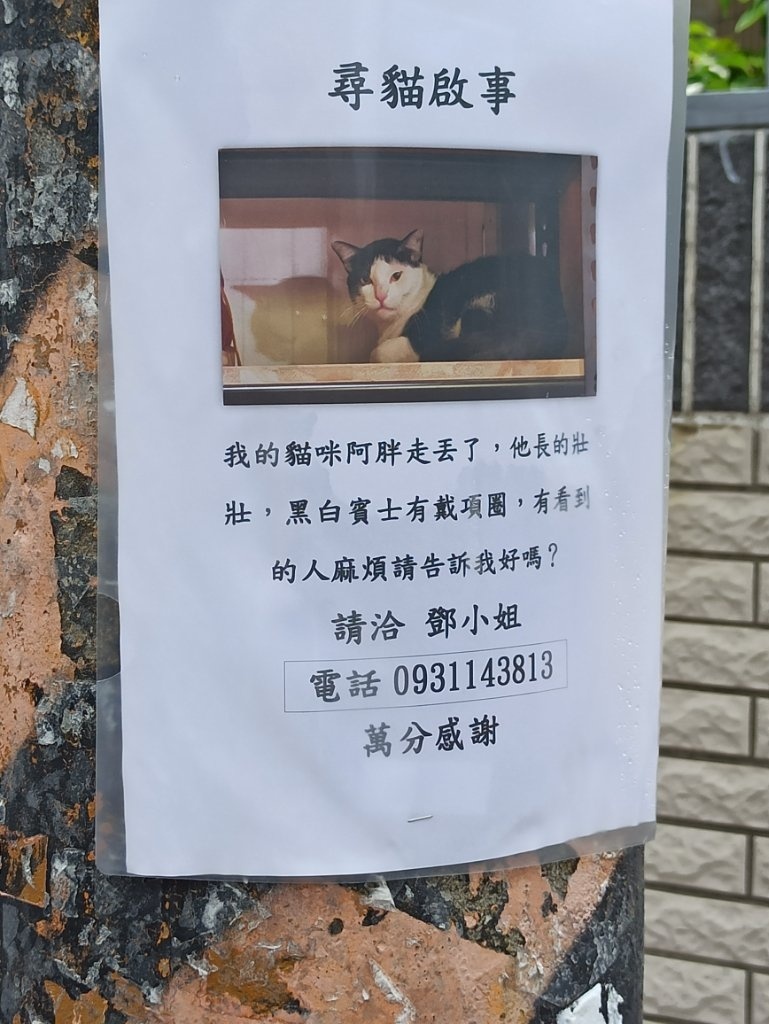 尋貓啟事
我的貓咪阿胖走丟了，他長的壯
壯，黑白賓士有戴項圈，有看到
的人麻煩請告訴我好嗎？
請洽 鄧小姐
電話 0931143813
萬分感謝